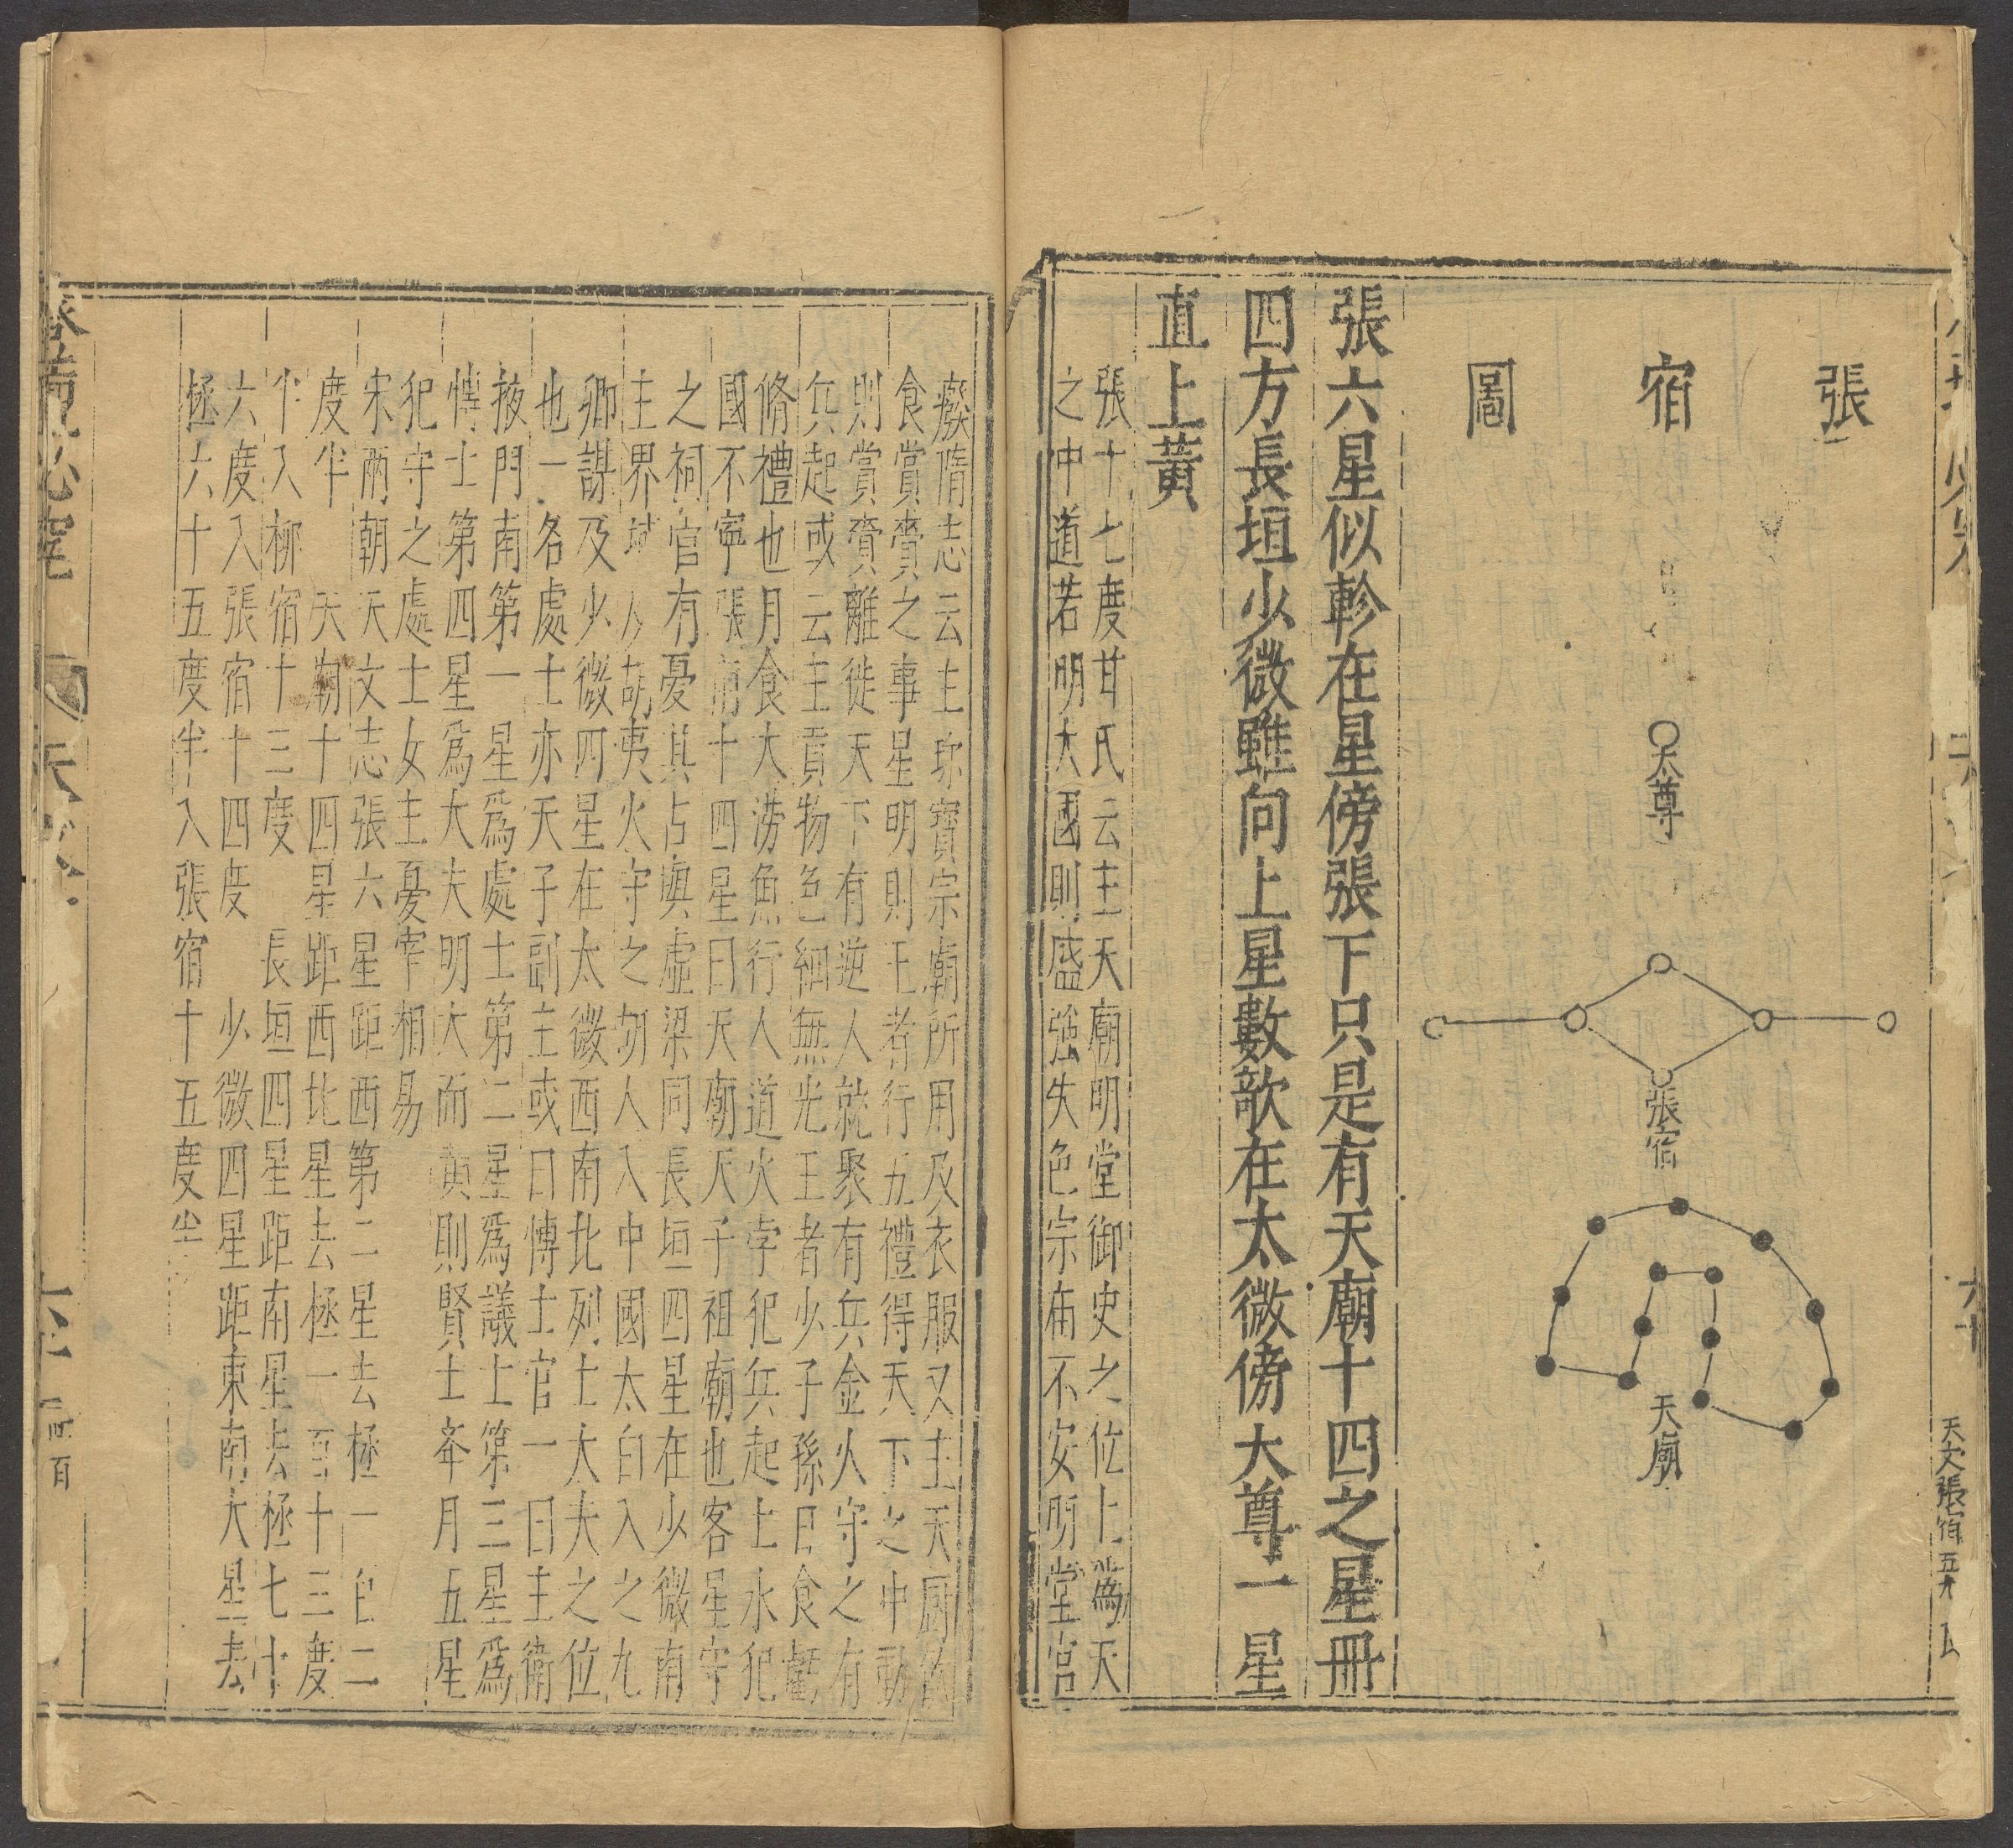 張
宿
圖
太尊
張宿
天廟
張六星似軫在星傍張下只是有天廟十四之星冊
四方長垣少微雖向上星數欹在太微傍大尊一星
直上黃
張十七度甘氏云主天廟明堂御史之位上為天
之中道若明大國則盛強失色宗廟不安明堂宮
廢隋志云主珎寶宗廟所用及衣服又主天厨飲
食賞賚之事星明則王者行五禮得天下之中動
則賞賚離徙天下有逆人就聚有兵金火守之有
兵起或云主貢物色細無光王者少子孫日食虧
脩禮也月食大澇魚行人道火孛犯兵起土水犯
國不寧張南十四星曰天廟天子祖廟也客星守
之祠官有憂其占與虛梁同長垣四星在少微南
主界域及胡夷火守之胡人入中國太白入之九
卿謀及少微四星在太微西南北列士大夫之位
也一名處士亦天子副主或曰博士官一曰主衛
掖門南第一星為處士第二星為議士第三星為
博士第四星為大夫明大而黃則賢士舉月五星
犯守之處士女主憂宰相易
宋兩朝天文志張六星距西第二星去極一百二
度半 天廟十四星距西北星去極一百十三度
半入柳宿十三度 長垣四星距南星去極七十
六度入張宿十四度 少微四星距東南大星去
極六十五度半入張宿十五度半
天文張宿五十九